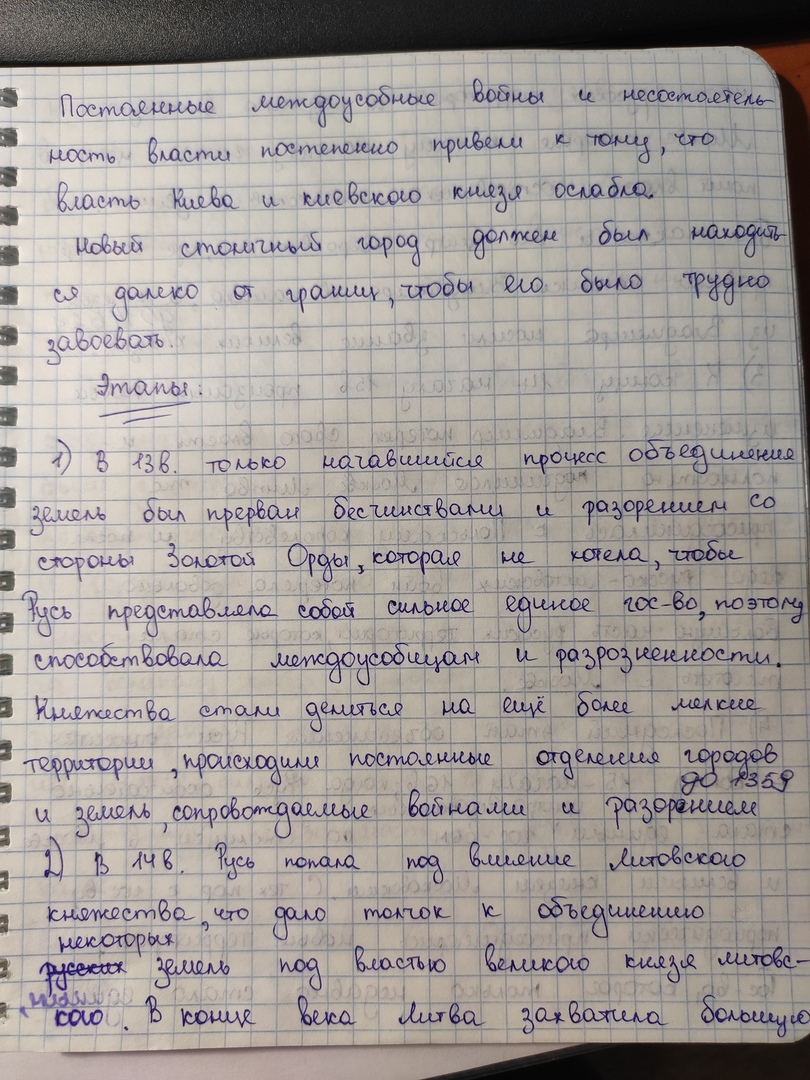 Постоянные междоусобные войны и несостоятель-
ность власти постепенно привели к тому, что
власть Киева и киевского князя ослабла.
Новый столичный город должен был находить-
ся далеко от границ, чтобы его было трудно
завоевать.
Этапы:
1) В 13в. только начавшийся процесс объединения
земель был прерван бесчинствами и разорением со
стороны Золотой Орды, которая не хотела, чтобы
Русь представляла собой сильное единое гос-во, поэтому
способствовала междоусобицам и разрозненности.
Княжества стали делиться на ещё более мелкие
территории, происходили постоянные отделения городов
до 1359
и земель, сопровождаемые войнами и разорением
2) В 14в. Русь попала под влияние Литовского
княжества, что дало толчок к объединению
некоторых
русских земель под властью великого князя литовс-
кого. В конце века Литва захватила большую